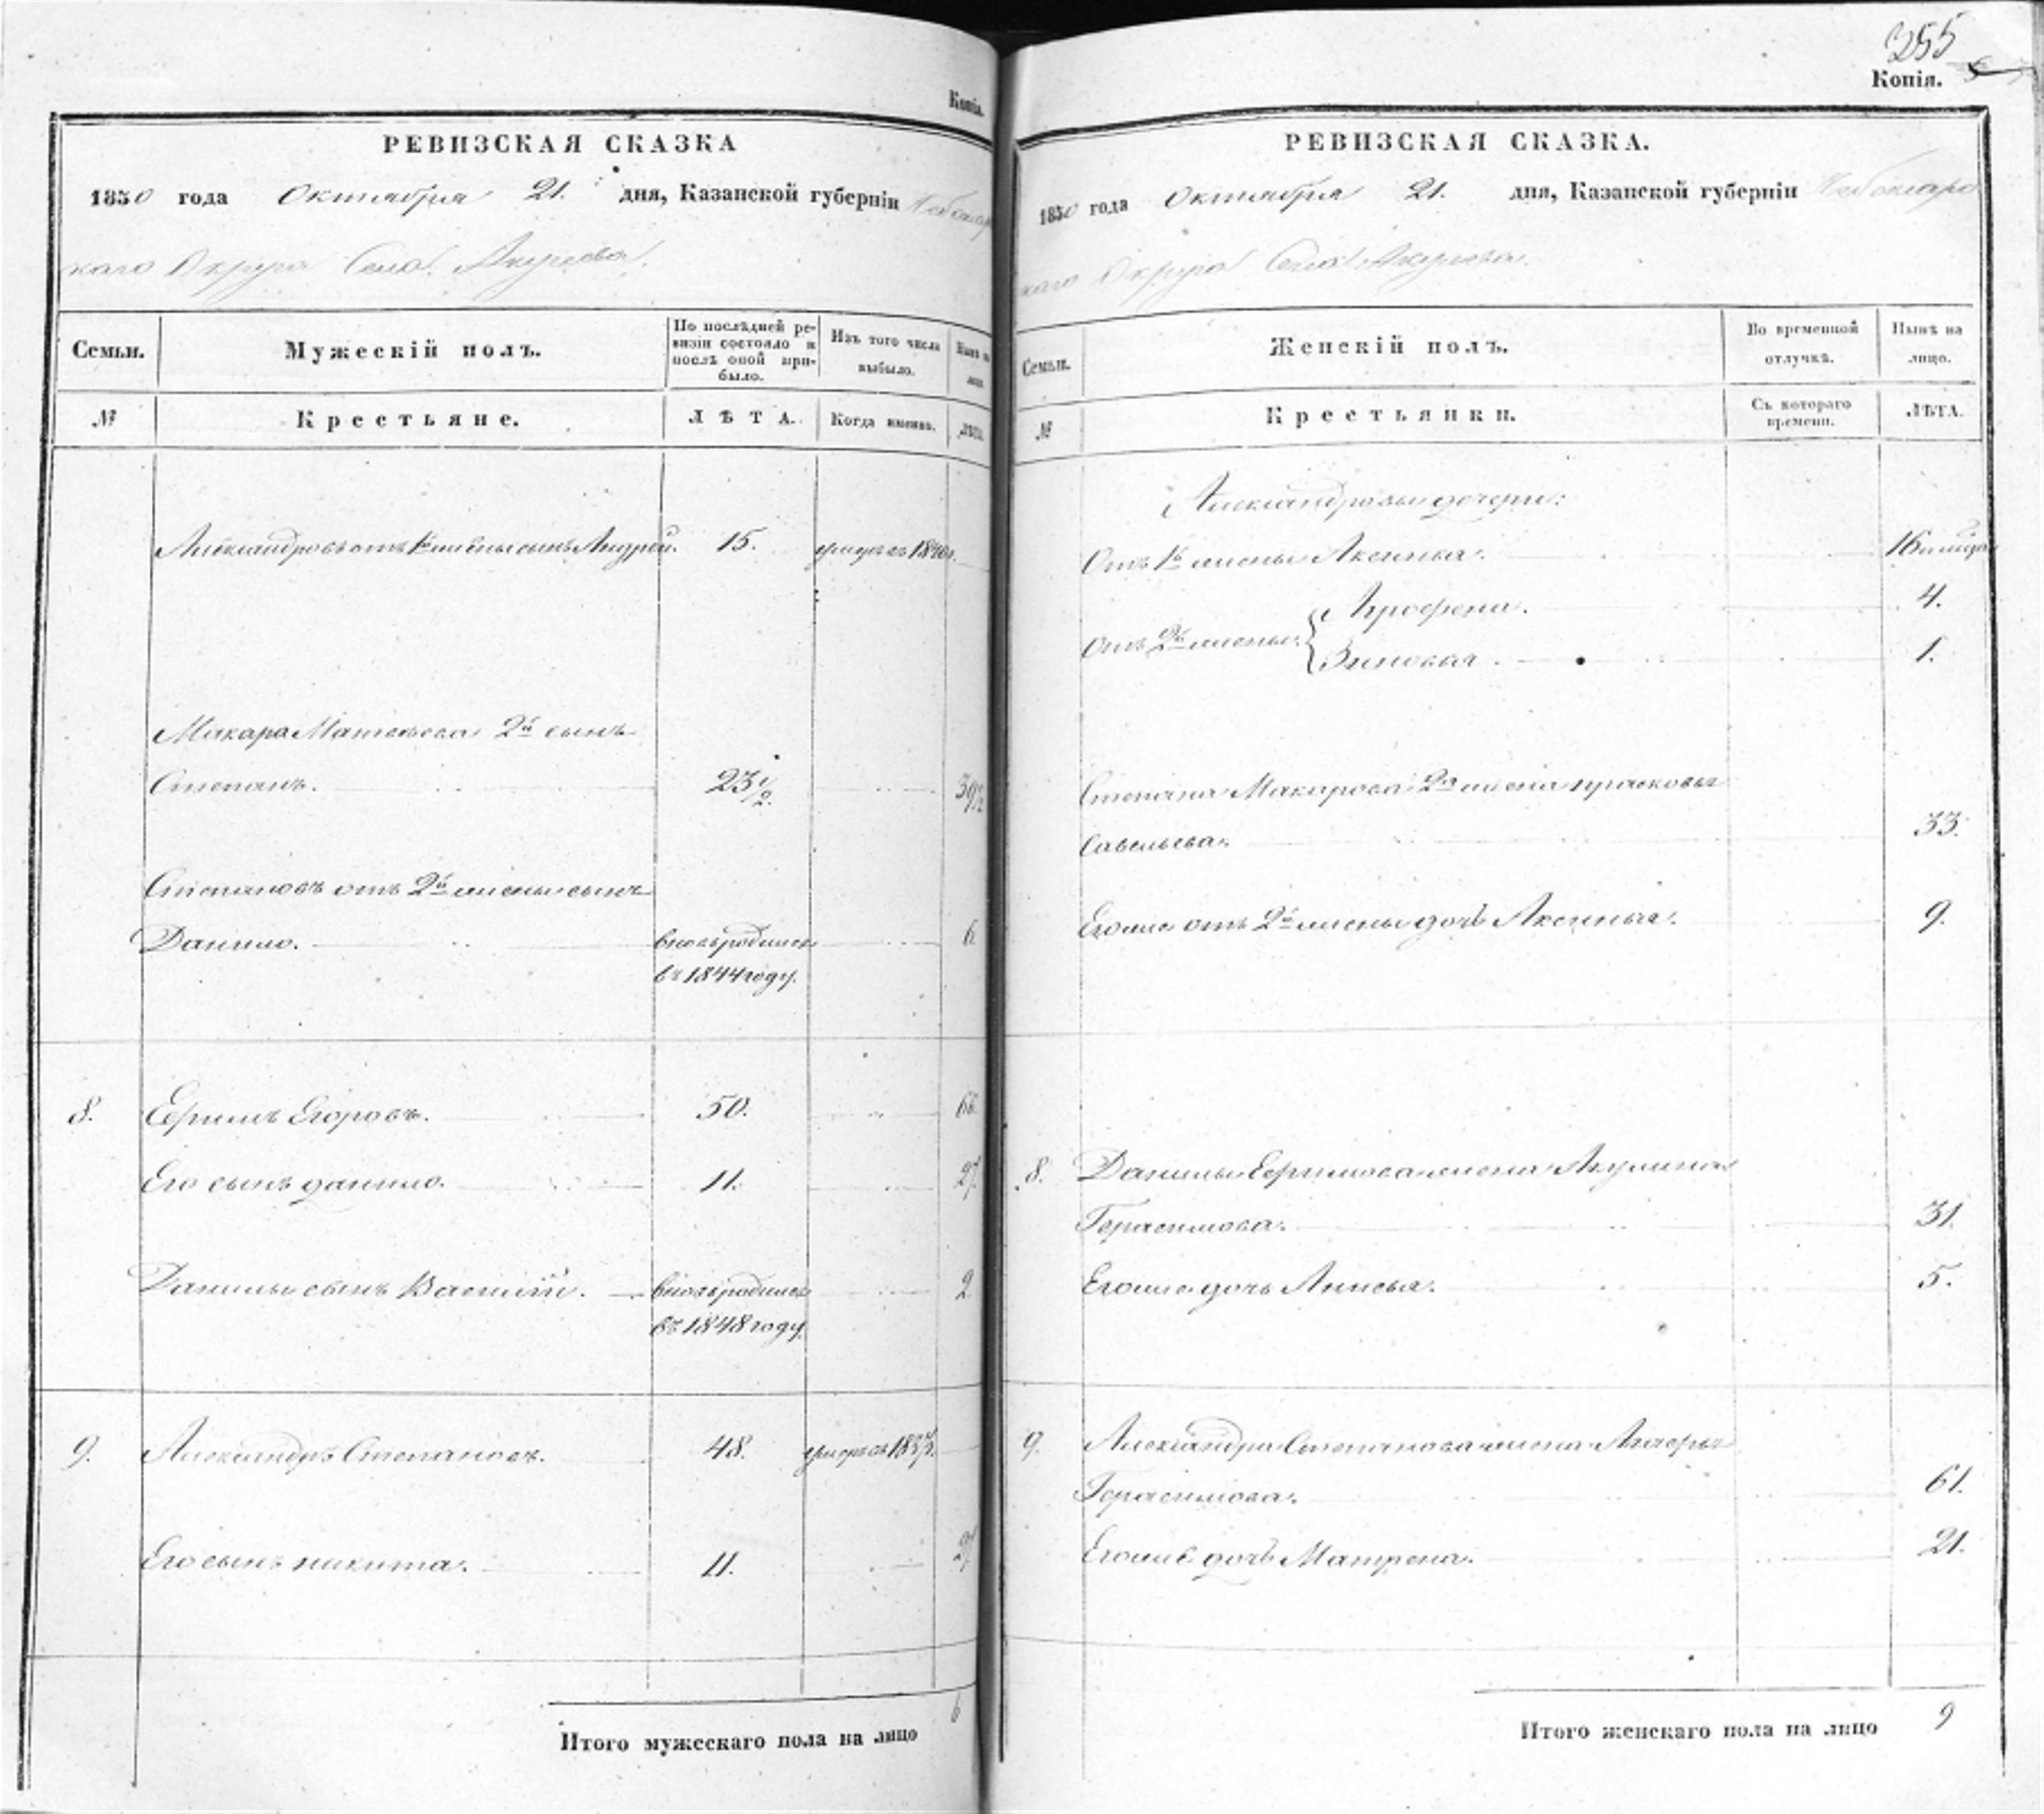 Копія.
РЕВИЗСКАЯ СКАЗКА
1850 года Октября 21. дня, Казанской губерніи Чебоксар
каго Округа Села Акулева.
Семьи.
Мужескій полъ.
По послѣдней ре-
визіи состояло и
послѣ оной при-
было.
Изъ того числа
выбыло.
Нынѣ на
лицо.
№
Крестьяне.
ЛѢТА.
Когда именно.
ЛѢТА.
Александровъ отъ 1й жены сынъ Андрей. 15. умеръ въ 1840г.
Макара Матвѣева 2й сынъ
Степанъ. 23 1/2. 39 1/2
Степановъ отъ 2й жены сынъ
Данило. вновь родился 6
въ 1844 году.
8. Ефимъ Егоровъ. 50. 66
Его сынъ данило. 11. 27
Данилы сынъ Василій. вновь родился 2
въ 1848 году.
9. Александръ Степановъ. 48. умеръ въ
Его сынъ никита. 11. 27
6
Итого мужескаго пола на лицо
255
Копія.
РЕВИЗСКАЯ СКАЗКА.
1850 года Октября 21. дня, Казанской губерніи Чебоксарс
каго Округа Села Акулева.
Семьи.
Женскій полъ.
Во временной
отлучкѣ.
Нынѣ на
лицо.
№
Крестьянки.
Съ котораго
времени.
ЛѢТА.
Александровы дочери:
Отъ 1й жены Аксинья. 16
Агрофена. 4.
Отъ 2й жены:
Зиновья. 1.
Степана Макарова 2я жена прасковья
Савельева. 33.
Егоже отъ 2й жены дочь Аксинья. 9.
8. Данилы Ефимова жена Акулина
Герасимова. 31.
Егоже дочь Анисья. 5.
9. Александра Степанова жена
Герасимова. 61.
Егоже дочь Матрена. 21.
9
Итого женскаго пола на лицо